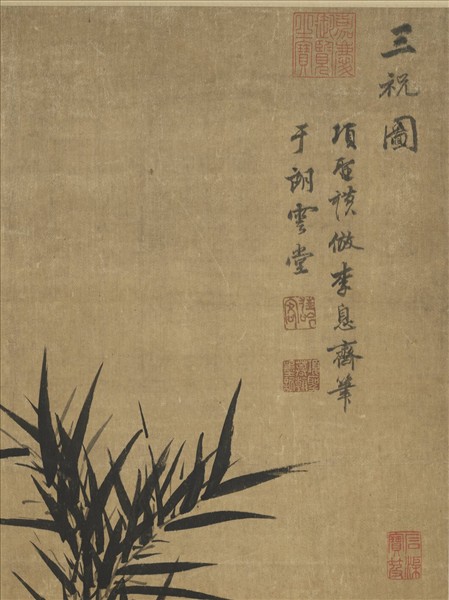 三祝圖
項聖謨倣李息齋筆
于朗雲堂
嘉慶御覽之寶